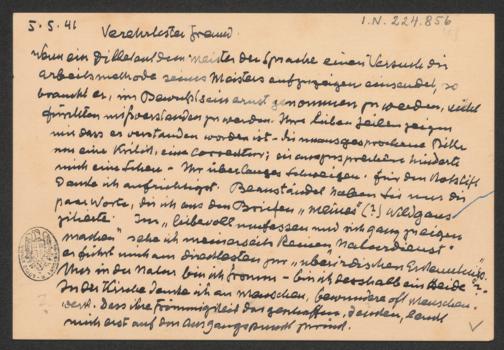 5.5.41
I.N. 224.856
Verehrtester Freund.
Wenn ein Dilettant dem Meister der Sprache einen Versuch die
Arbeitsmethode seines Meisters aufzuzeigen einsendet, so
braucht er, im Bewußtsein ernst genommen zu werden, nicht
fürchten mißverstanden zu werden. Ihre lieben Zeilen zeigen
mir dass er verstanden worden ist - die unausgesprochene Bitte
um eine Kritik, eine Correctur; die auszusprechen hinderte
mich eine Scheu - Ihr überlanges Schweigen. Für den Rotstift
Danke ich aufrichtigst. Beanständet haben Sie nur die
paar Worte, die ich aus den Briefen "meines" (?) Wildgans
zitierte: Im "liebevoll umfassen und sich ganz zu eigen
machen" sehe ich meinerseits keinen "Naturdienst"
er führt mich am direktesten zur "überirdischen Erkenntnis".
Nur in der Natur bin ich fromm - bin ich deshalb ein Heide?
In der Kirche denke ich an Menschen, bewundere oft Menschen-
werk. Dass ihre Frömmigkeit das geschaffen,
mich erst auf den Ausgangspunkt zurück.